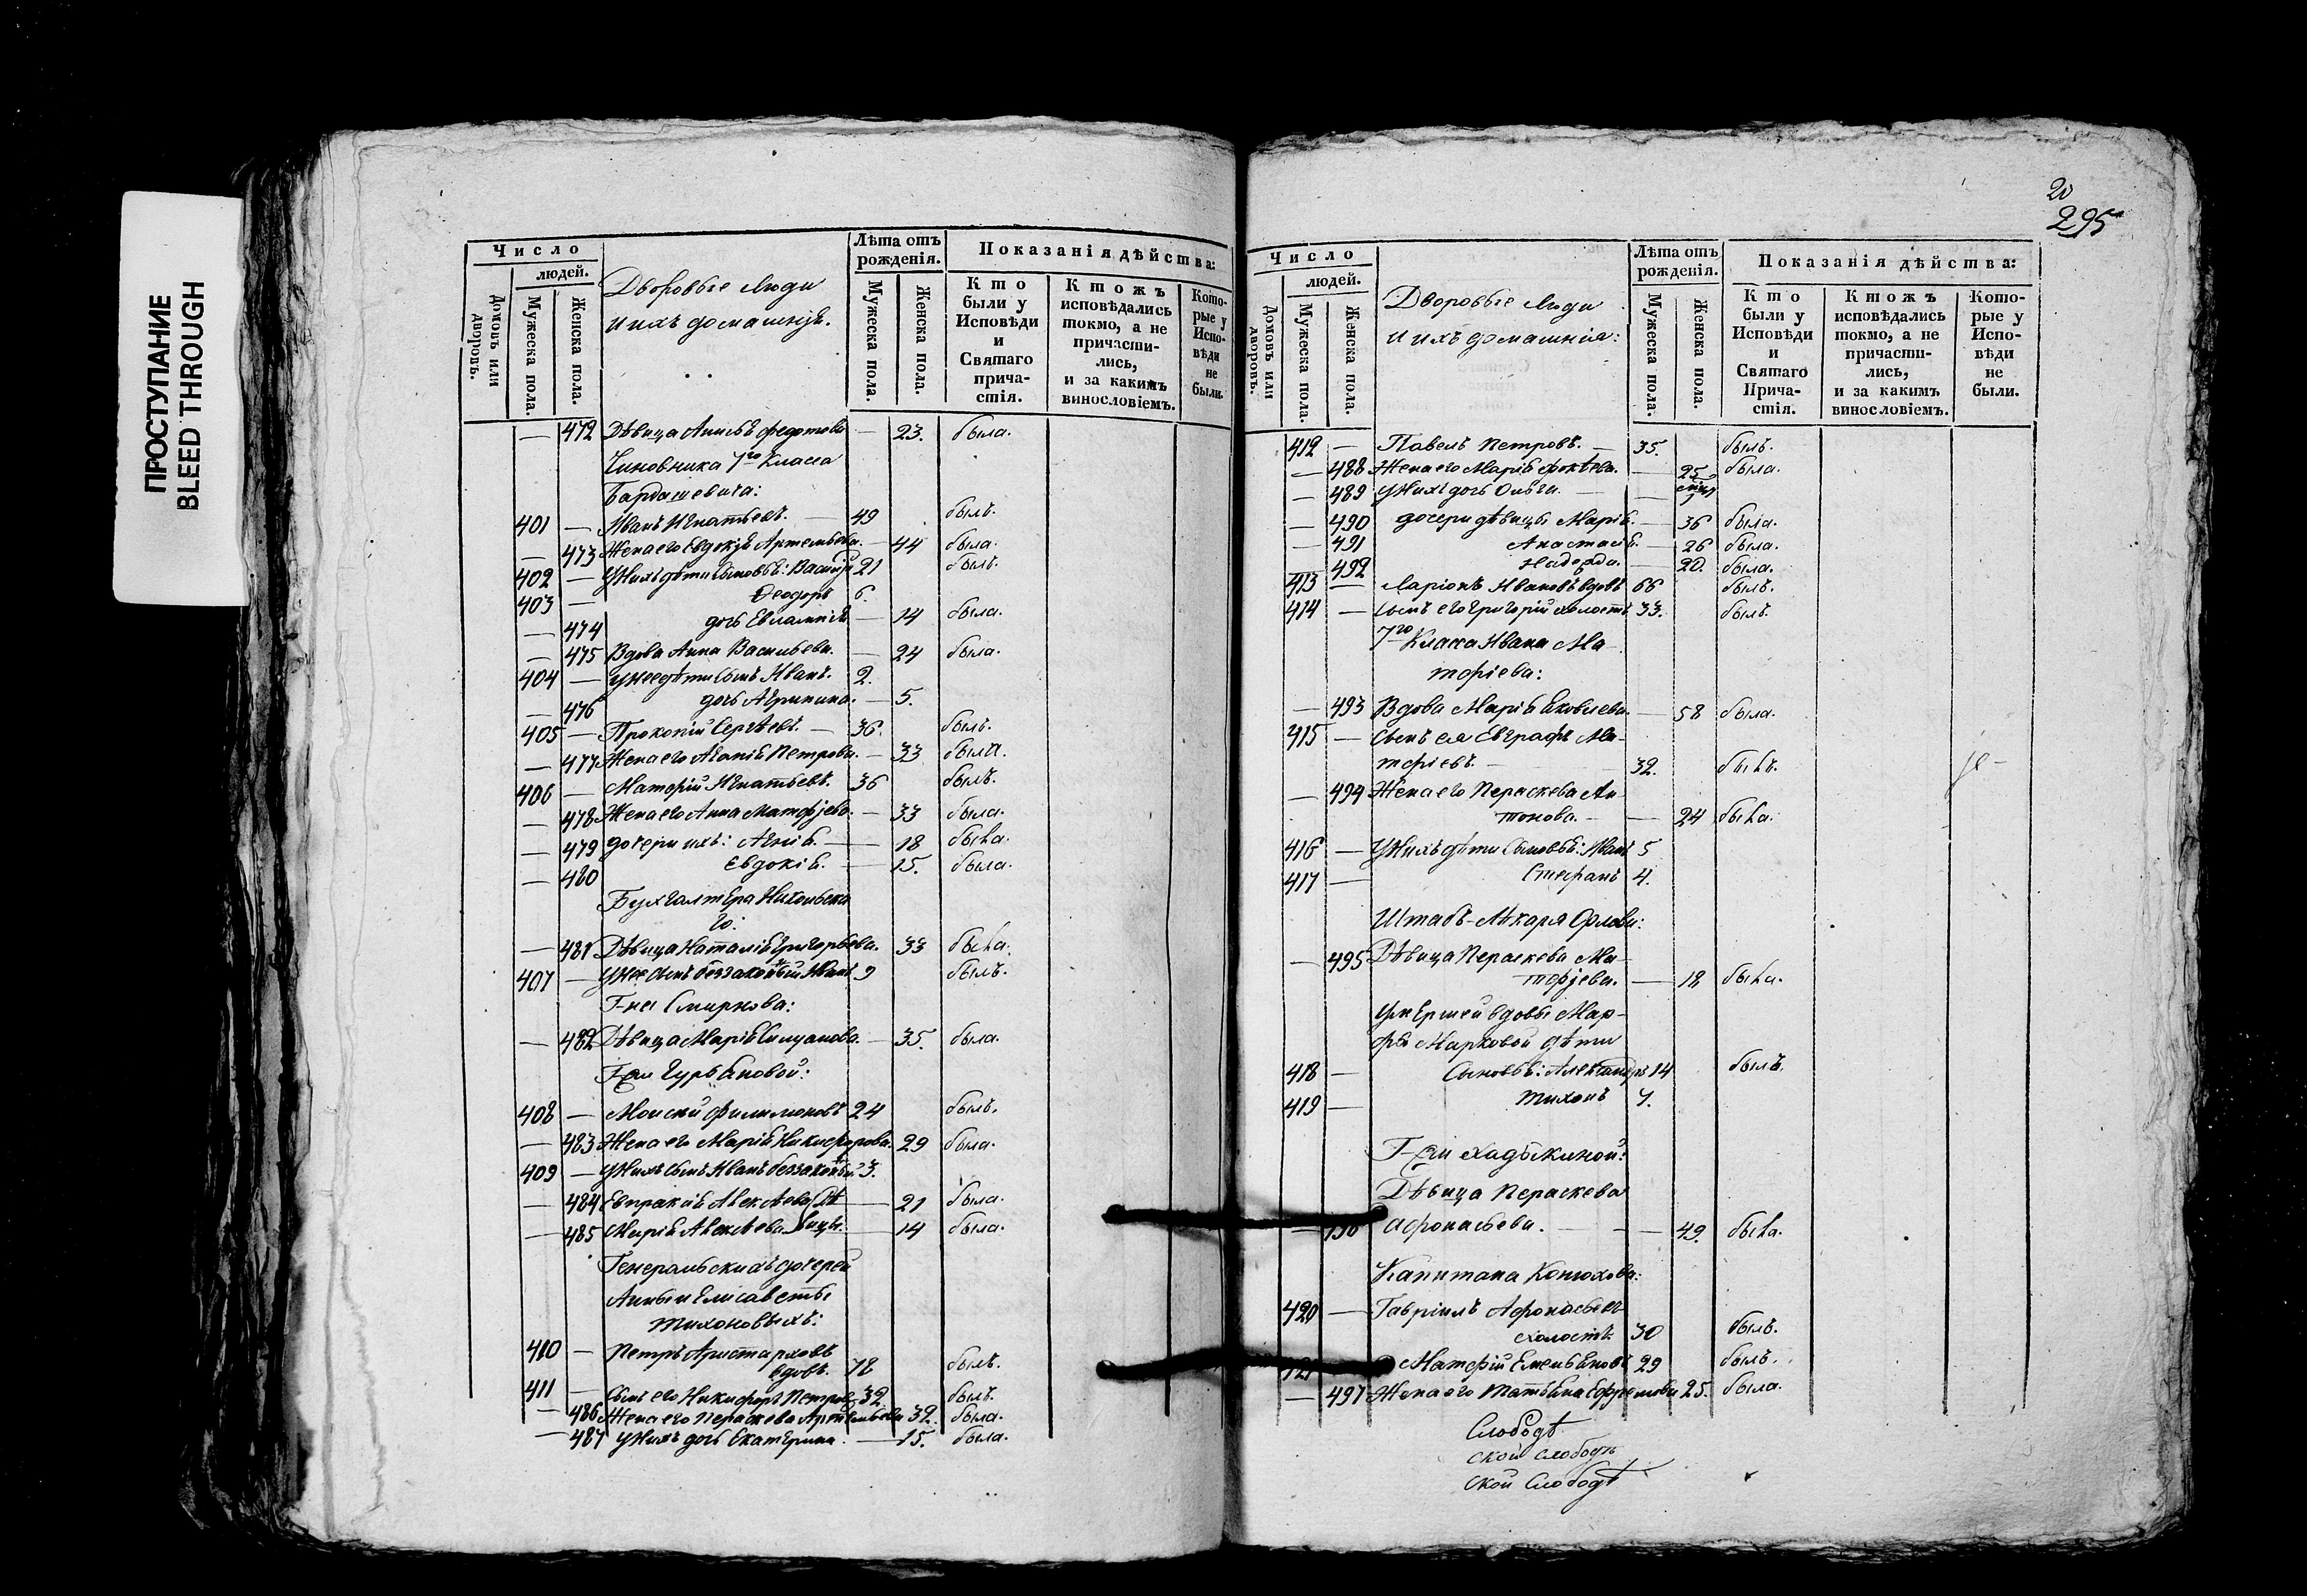 ПРОСТУПАНИЕ
BLEED THROUGH
20
295
Число
людей.
Домовъ или дворовъ.
Мужеска пола.
Женска пола.
Дворовые люди
и ихъ домашнія.
Лѣта отъ рожденія.
Мужеска пола.
Женска пола.
Показанія дѣйства:
Кто были у Исповѣди и Святаго прича-стія.
Ктожъ исповѣдались токмо, а не причасти-лись, и за какимъ винословіемъ.
Кото-рые у Испо-вѣди не были.
— 472 Дѣвица Анисья Федотова — 23. была.
Чиновника 7го Класса
Бардашевича:
401 — Иванъ Игнатьевъ. — 49 былъ.
— 473 Жена его Евдокія Артемьева. — 44 была.
402 — У нихъ дѣти сыновья: Василій 21 былъ.
403 — Ѳеодоръ 6.
— 474 дочь Евлампія — 14 была.
— 475 Вдова Анна Васильева. — 24 была.
404 — у нее дѣти сынъ Иванъ. 2.
— 476 дочь Агрипина. — 5.
405 — Прокопій Сергѣевъ. — 36. былъ.
— 477 Жена его Агапія Петрова. — 33 была.
406 — Матфій Игнатьевъ. 36 былъ.
— 478 Жена его Анна Матфіева. — 33 была.
— 479 дочери ихъ: Агнія. — 18 была.
— 480 Евдокія. — 15. была
Бухгалтера Никольска
го.
— 481 Дѣвица Наталія Григорьева. 33 была.
407 — У нее сынъ беззаконный Иванъ 9 былъ.
Г-на Смирнова:
— 482 Дѣвица Марія Силуанова. — 35. была.
Г-жи Гурьяновой:
408 — Моисей Филимоновъ 24 былъ.
— 483 Жена его Марія Никифорова. 29 была.
409 — У нихъ сынъ Иванъ беззаконный 3.
— 484 Евпраксія Алексѣева дѣ — 21 была.
— 485 Марія Алексѣева вицы. — 14 была.
Генеральскихъ дочерей
Анны и Елисаветы
Тихоновыхъ:
410 — Петръ Аристарховъ
вдовъ. 78 былъ.
411 — Сынъ его Никифоръ Петровъ 32 былъ.
— 486 Жена его Параскева Артемьева 32. была.
— 487 У нихъ дочь Екатерина. — 15. была.
Число
людей.
Домовъ или дворовъ.
Мужеска пола.
Женска пола.
Дворовые люди
и ихъ домашнія:
Лѣта отъ рожденія.
Мужеска пола.
Женска пола.
Показанія дѣйства:
Кто были у Исповѣди и Святаго Прича-стія.
Ктожъ исповѣдались токмо, а не причасти-лись, и за какимъ винословіемъ.
Кото-рые у Испо-вѣди не были.
412 — Павелъ Петровъ. — 35. былъ.
— 488 Жена его Марія Фокѣева. — 25 была.
— 489 У нихъ дочь Ольга. —
— 490 дочери дѣвицы Марія. — 36 была.
— 491 Анастасія. — 26 была.
— 492 Надежда. — 20. была.
413 — Ларіонъ Ивановъ вдовъ 66 былъ.
414 — Сынъ его Григорій холостъ 33. былъ.
7го Класса Ивана Ма-
тфіева:
— 493 Вдова Марія Яковлева. — 58 была.
415 — Сынъ ея Евграфъ Ма-
тфіевъ. — 32. былъ.
— 494 Жена его Параскева Ан-
тонова. — 24 была.
416 — У нихъ дѣти сыновья: Иванъ 5
417 — Стефанъ 4.
Штабъ-Лѣкаря Орлова:
— 495 Дѣвица Параскева Ма-
тфіева. — 18 была.
Умершей вдовы Мар-
фы Марковой дѣти
418 — Сыновья: Александръ 14 былъ.
419 — Тихонъ 7.
Г-жи Хадыкиной:
Дѣвица Параскева
Афонасьева. — 49. была.
Капитана Конюхова:
420 — Гавріилъ Афонасьевъ
холостъ 30 былъ.
Матфій Емельяновъ 29 былъ.
— 497 Жена его Татьяна Ефремова 25. была.
Слободѣ
ской слободѣ
ской Слободѣ